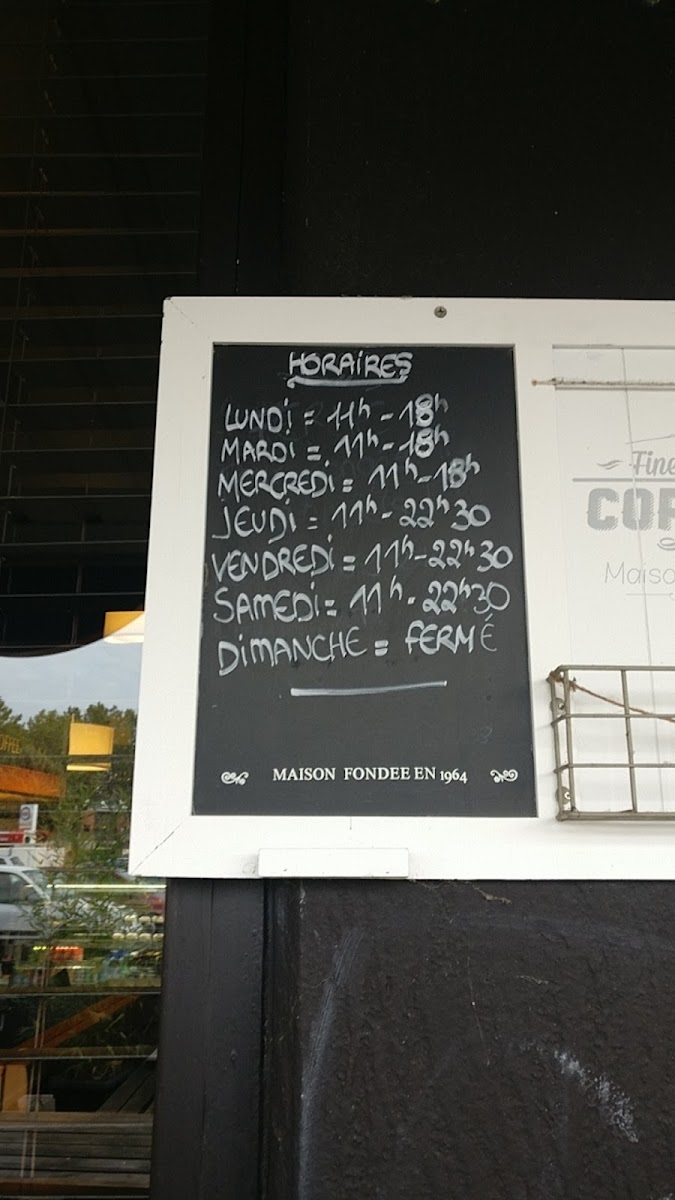 HORAIRES
LUNDI = 11h - 18h
MARDI = 11h - 18h
MERCREDI = 11h - 18h
JEUDI = 11h - 22h30
VENDREDI = 11h - 22h30
SAMEDI = 11h - 22h30
DIMANCHE = FERMÉ
MAISON FONDEE EN 1964
Fine